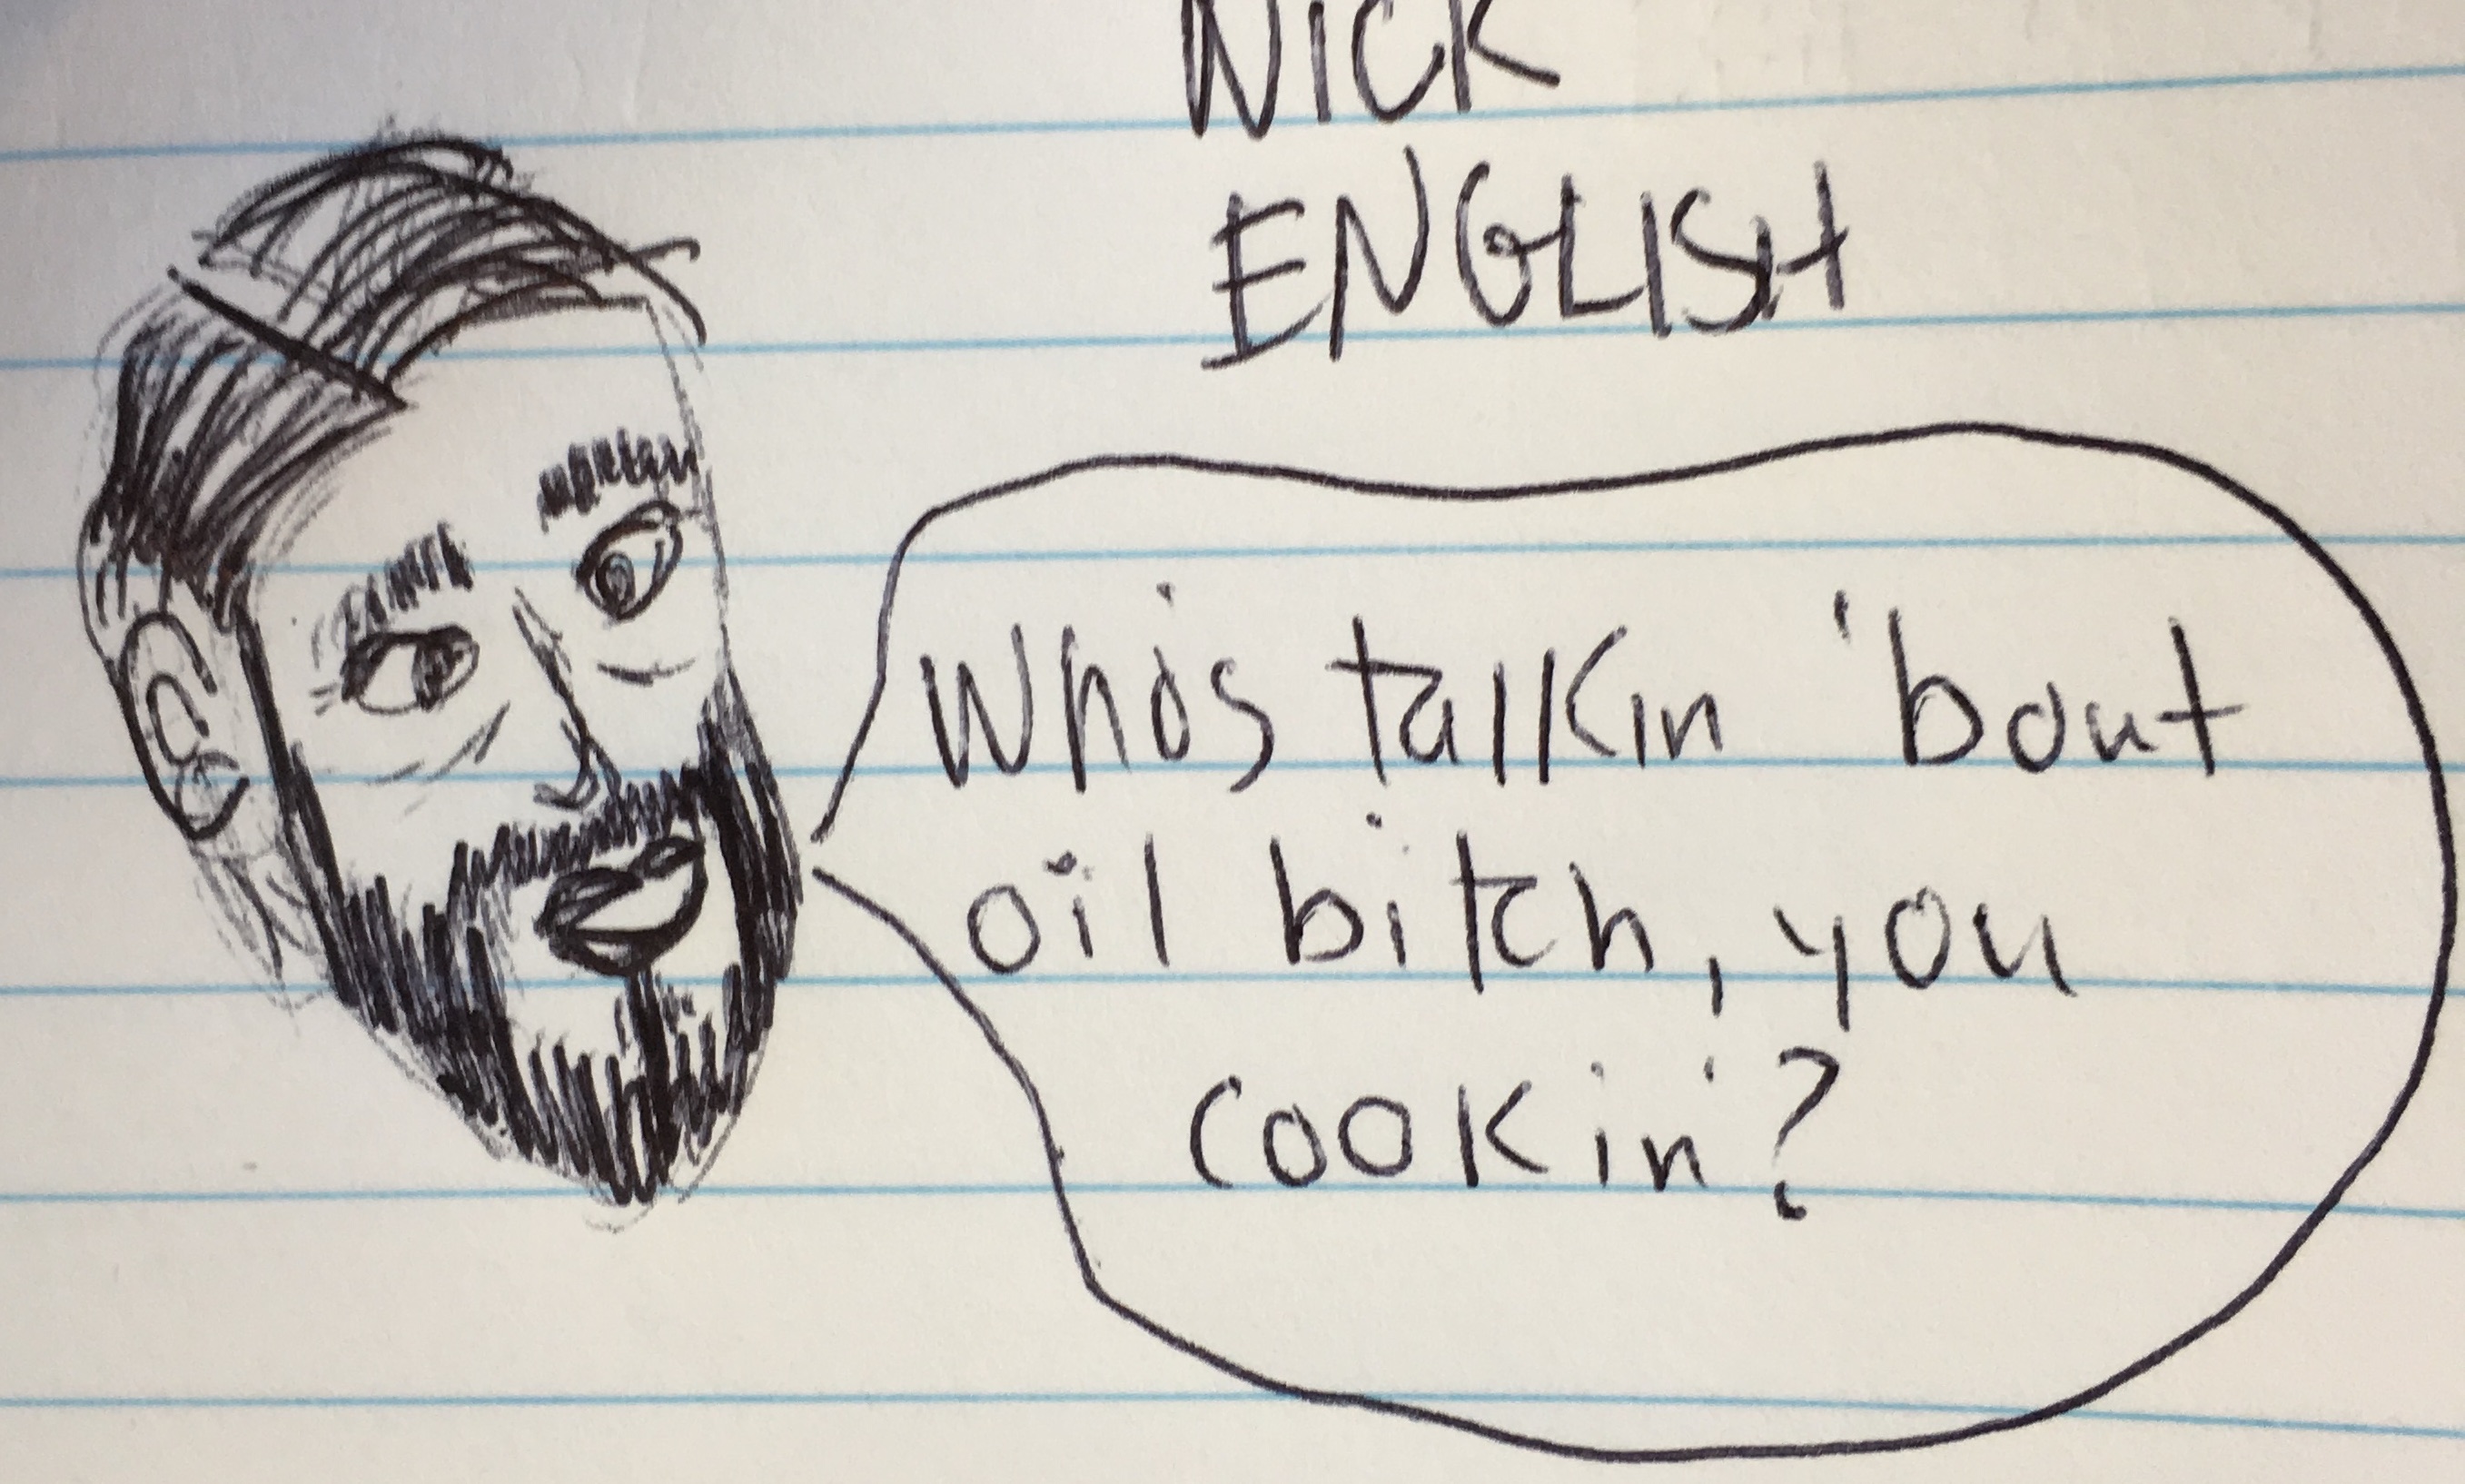 NICK
ENGLISH
Who's talkin 'bout
oil bitch, you
cookin'?